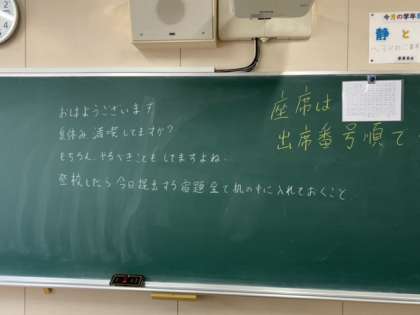 今月の学年
静 と
おはようございます
夏休み満喫してますか?
もちろん、やるべきこともしてますよね.
登校したら今日提出する宿題全て机の中に入れておくこと
座席は
出席番号順で